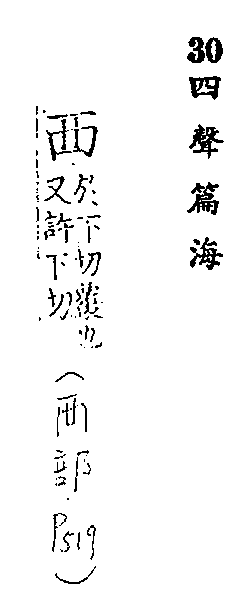 30四聲篇海
襾
於下切覆也
又許下切
(襾部.P519)